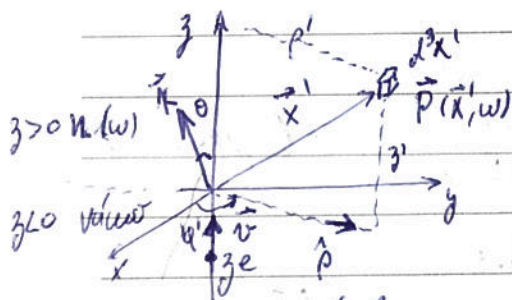 z
ρ'
d³x'
k⃗
θ
x⃗'
P⃗(x⃗',ω)
z>0 n(ω)
z'
z<0 vácuo
y
φ'
v⃗
x
ze
ρ̂